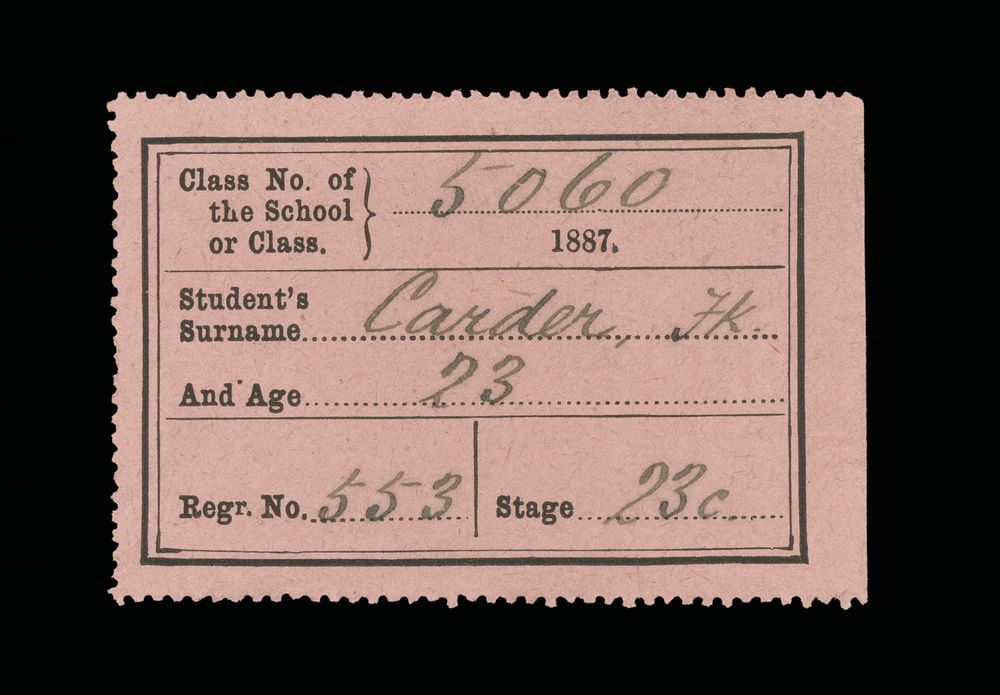 Class No. of
the School
or Class.
5060
1887.
Student's
Surname Carder, Fk.
And Age 23
Regr. No. 553
Stage 23c.